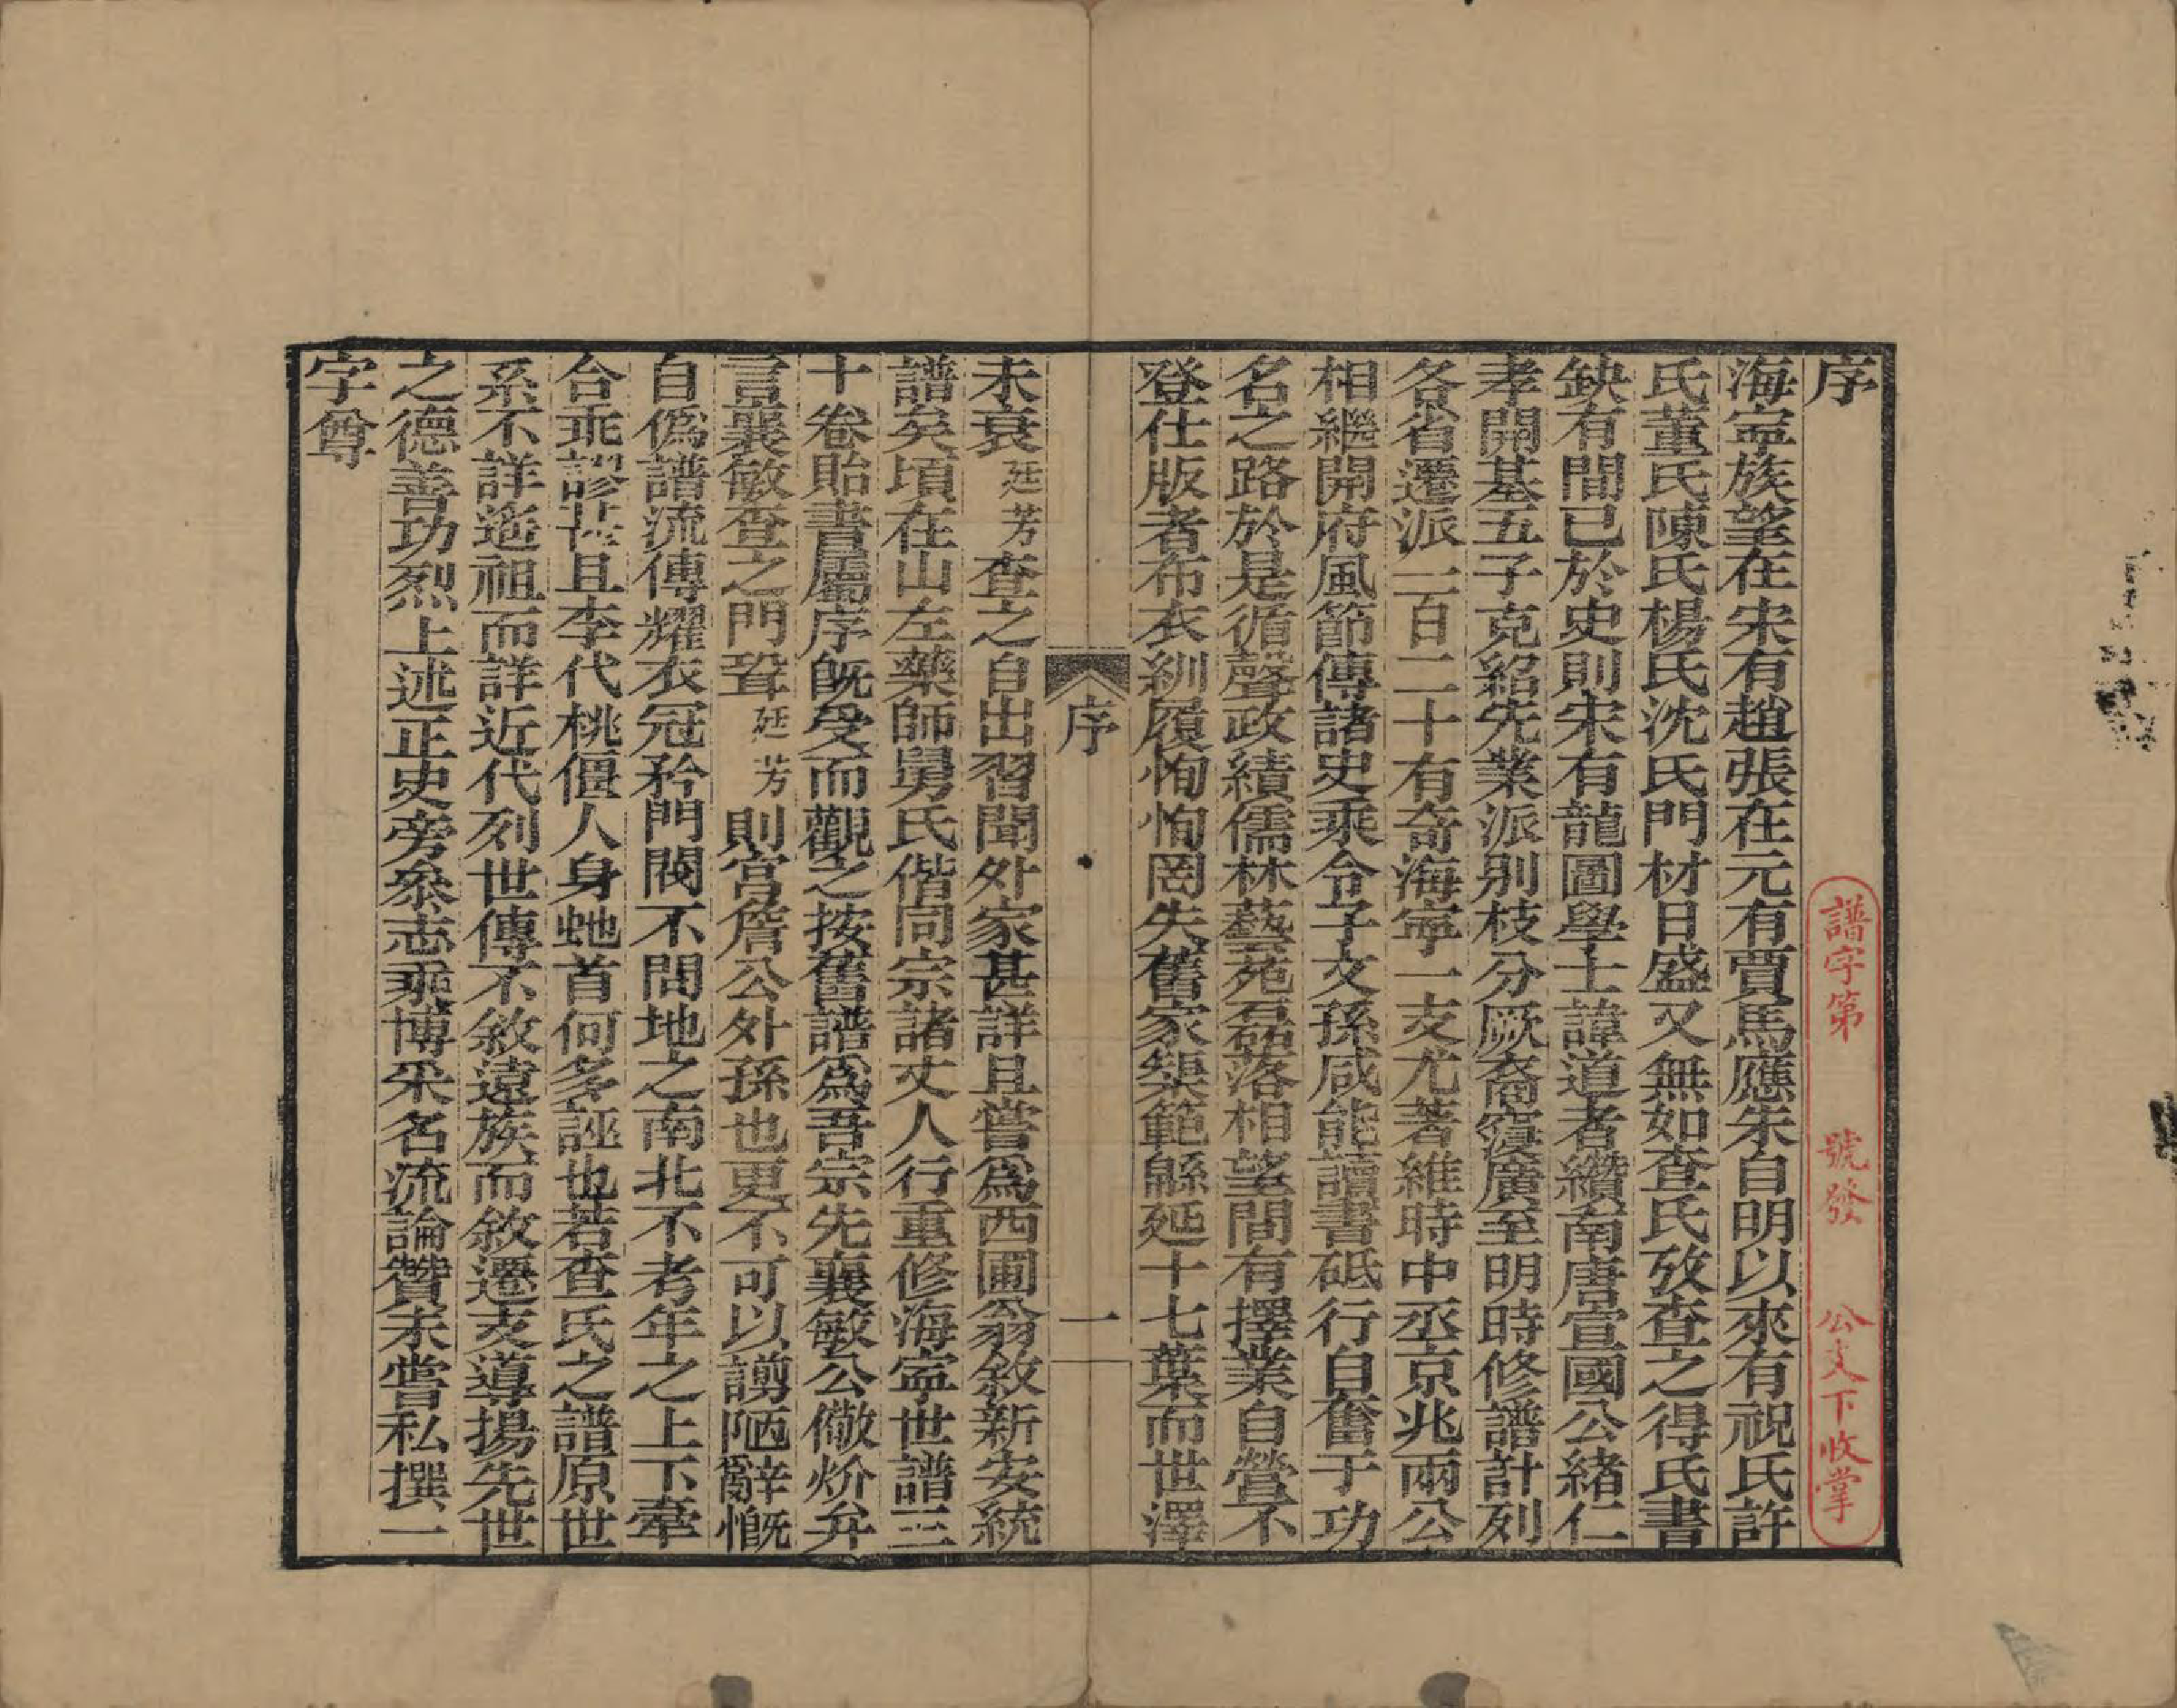 序
譜字第　號發　公支下收掌
海寧族望在宋有趙張在元有賈馬應朱自明以來有祝氏許
氏董氏陳氏楊氏沈氏門材日盛又無如查氏攷查之得氏書
缺有間已於史則宋有龍圖學士諱道者纘南唐宣國公緒仁
孝開基五子克紹先業派別枝分厥裔寖廣至明時修譜計列
各省遷派一百二十有奇海寧一支尤著維時中丞京兆兩公
相繼開府風節傳諸史乘令子文孫咸能讀書砥行自奮于功
名之路於是循聲政績儒林藝苑磊落相望間有擇業自營不
登仕版者布衣紃履恂恂罔失舊家榘範緜延十七葉而世澤
序　一
未衰廷芳查之自出習聞外家甚詳且嘗爲西圃翁敘新安統
譜矣頃在山左藥師舅氏偕同宗諸丈人行重修海寧世譜三
十卷貽書屬序既受而觀之按舊譜爲吾宗先襄敏公儆炌弁
言襄敏查之門壻廷芳則宮詹公外孫也更不可以謭陋辭慨
自僞譜流傳耀衣冠矜門閥不問地之南北不考年之上下牽
合乖謬甚且李代桃僵人身虵首何多誣也若查氏之譜原世
系不詳遙祖而詳近代列世傳不敘遠族而敘遷支導揚先世
之德善功烈上述正史旁叅志乘博采名流論贊未嘗私撰一
字尊